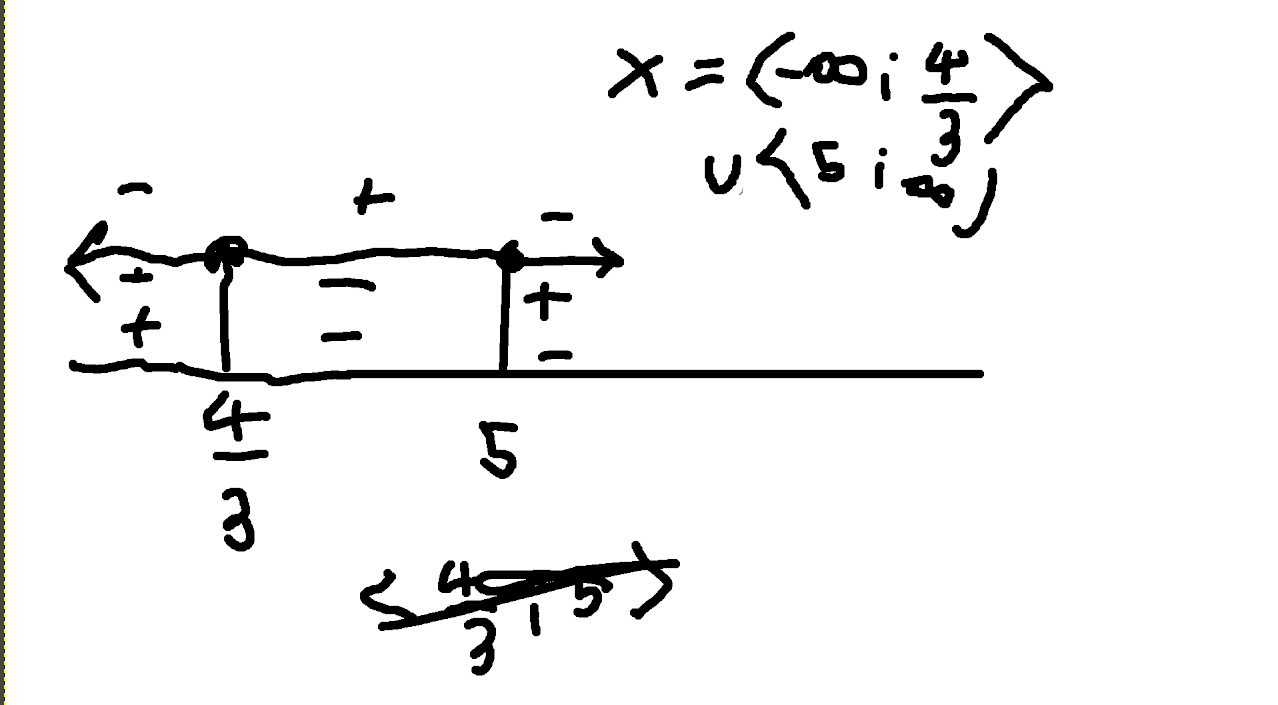 x = (-∞ ; 4/3>
∪ <5 ; ∞)
- + -
- - +
+ - -
4/3 5
<4/3 ; 5>